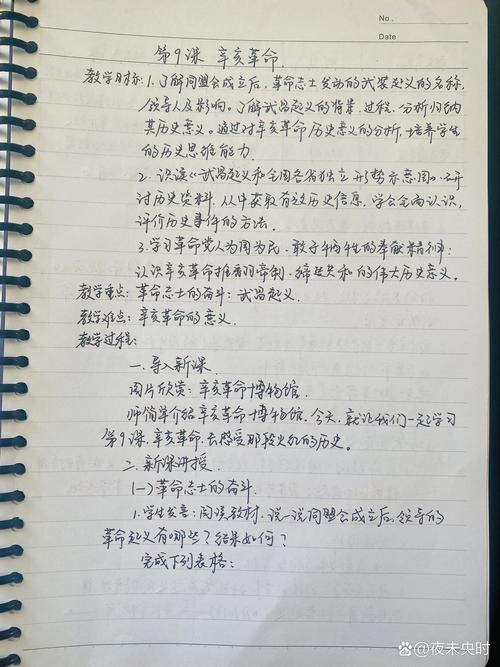 No.
Date
第9课 辛亥革命.
教学目标:1.了解同盟会成立后,革命志士发动的武装起义的名称,
领导人及影响。了解武昌起义的背景.过程.分析归纳
其历史意义。通过对辛亥革命历史意义的分析,培养学生
的历史思维能力.
2.识读《武昌起义和全国各省独立形势示意图》.研
讨历史资料.从中获取有效历史信息,学会全面认识,
评价历史事件的方法。
3.学习革命党人为国为民.敢于牺牲的奉献精神;
认识辛亥革命推翻帝制.缔造共和的伟大历史意义。
教学重点:革命志士的奋斗;武昌起义.
教学难点:辛亥革命的意义.
教学过程:
一.导入新课.
图片欣赏:辛亥革命博物馆.
师简单介绍辛亥革命博物馆.今天.就让我们一起学习
第9课.辛亥革命.去感受那段火红的历史。
二.新课讲授.
(一)革命志士的奋斗.
1.学生发言:阅读教材.说一说同盟会成立后.领导的
革命起义有哪些?结果如何?
完成下列表格:
百家号@夜未央时